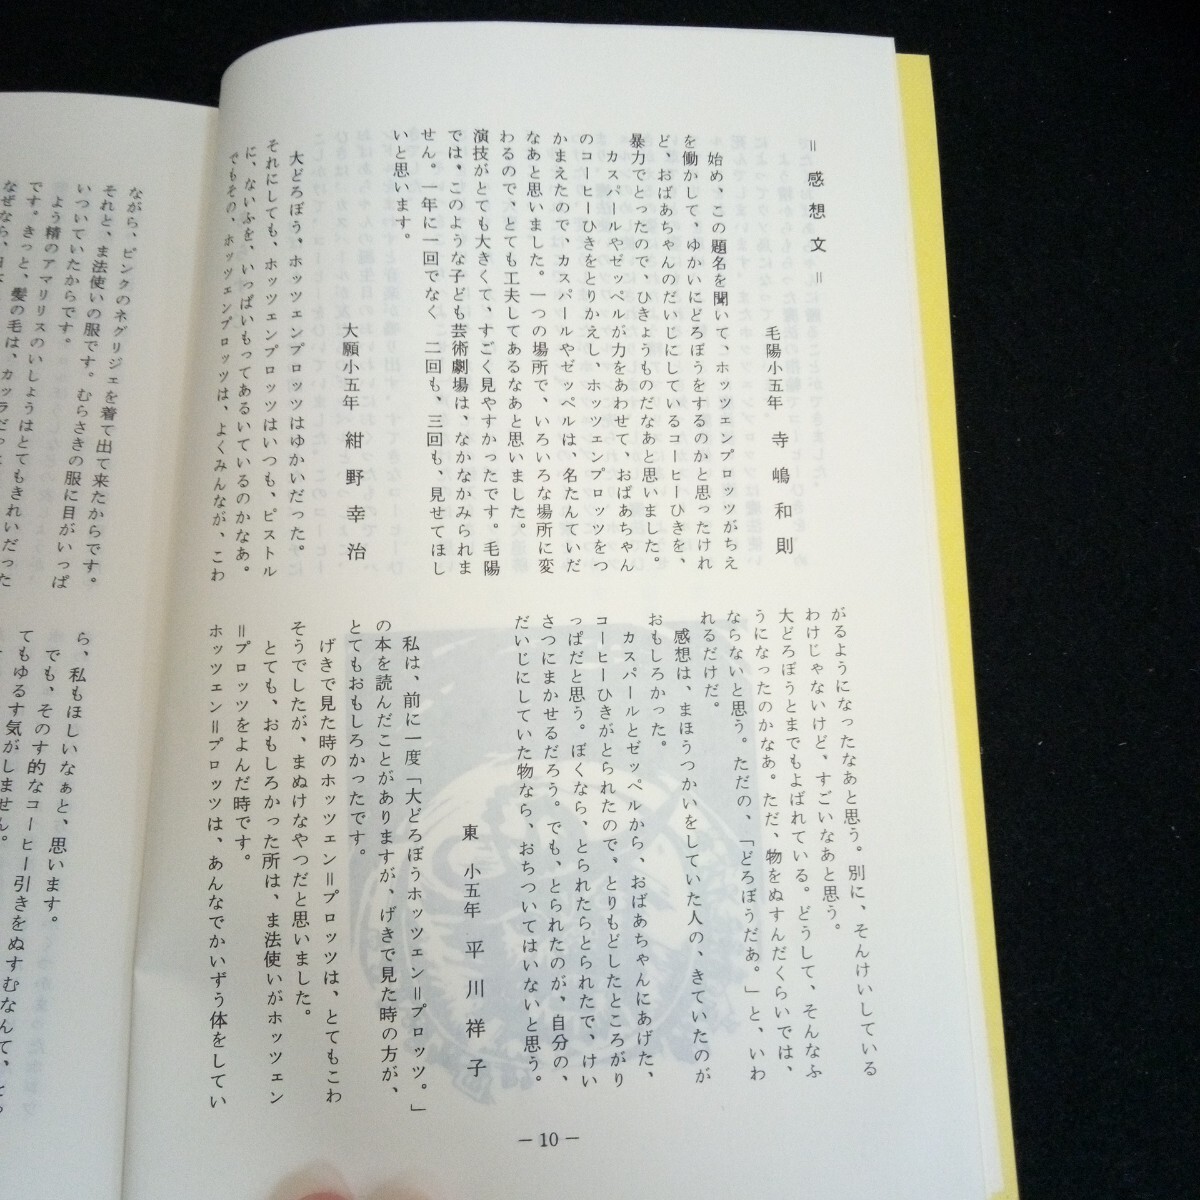 ＝感想文＝
毛陽小五年　寺嶋和則
始め、この題名を聞いて、ホッツェンプロッツがちえ
を働かして、ゆかいにどろぼうをするのかと思ったけれ
ど、おばあちゃんのだいじにしているコーヒーひきを、
暴力でとったので、ひきょうものだなあと思いました。
カスパールやゼッペルが力をあわせて、おばあちゃん
のコーヒーひきをとりかえし、ホッツェンプロッツをつ
かまえたので、カスパールやゼッペルは、名たんていだ
なあと思いました。一つの場所で、いろいろな場所に変
わるので、とても工夫してあるなあと思いました。大道
演技がとても大きくて、すごく見やすかったです。毛陽
では、このような子ども芸術劇場は、なかなかみられま
せん。一年に一回でなく、二回も、三回も、見せてほし
いと思います。
大願小五年　紺野幸治
大どろぼう、ホッツェンプロッツはゆかいだった。
それにしても、ホッツェンプロッツはいつも、ピストル
に、ないふを、いっぱいもってあるいているのかなあ。
でもその、ホッツェンプロッツは、よくみんなが、こわ
がるようになったなあと思う。別に、そんけいしている
わけじゃないけど、すごいなあと思う。
大どろぼうとまでもよばれている。どうして、そんなふ
うになったのかなあ。ただ、物をぬすんだくらいでは、
ならないと思う。ただの、「どろぼうだあ。」と、いわ
れるだけだ。
感想は、まほうつかいをしていた人の、きていたのが
おもしろかった。
カスパールとゼッペルから、おばあちゃんにあげた、
コーヒーひきがとられたので、とりもどしたところがり
っぱだと思う。ぼくなら、とられたらとられたで、けい
さつにまかせるだろう。でも、とられたのが、自分の、
だいじにしていた物なら、おちついてはいないと思う。
東小五年　平川祥子
私は、前に一度「大どろぼうホッツェン＝プロッツ。」
の本を読んだことがありますが、げきで見た時の方が、
とてもおもしろかったです。
げきで見た時のホッツェン＝プロッツは、とてもこわ
そうでしたが、まぬけなやつだと思いました。
とても、おもしろかった所は、ま法使いがホッツェン
＝プロッツをよんだ時です。
ホッツェン＝プロッツは、あんなでかいずう体をしてい
－10－
ながら、ピンクのネグリジェを着て出て来たからです。
それと、ま法使いの服です。むらさきの服に目がいっぱ
いついていたからです。
よう精のアマリリスのいしょうはとてもきれいだった
です。きっと、髪の毛は、カツラだっ
なぜなら、日本
ら、私もほしいなぁと、思います。
でも、そのす的なコーヒー引きをぬすむなんて、とっ
てもゆるす気がしません。